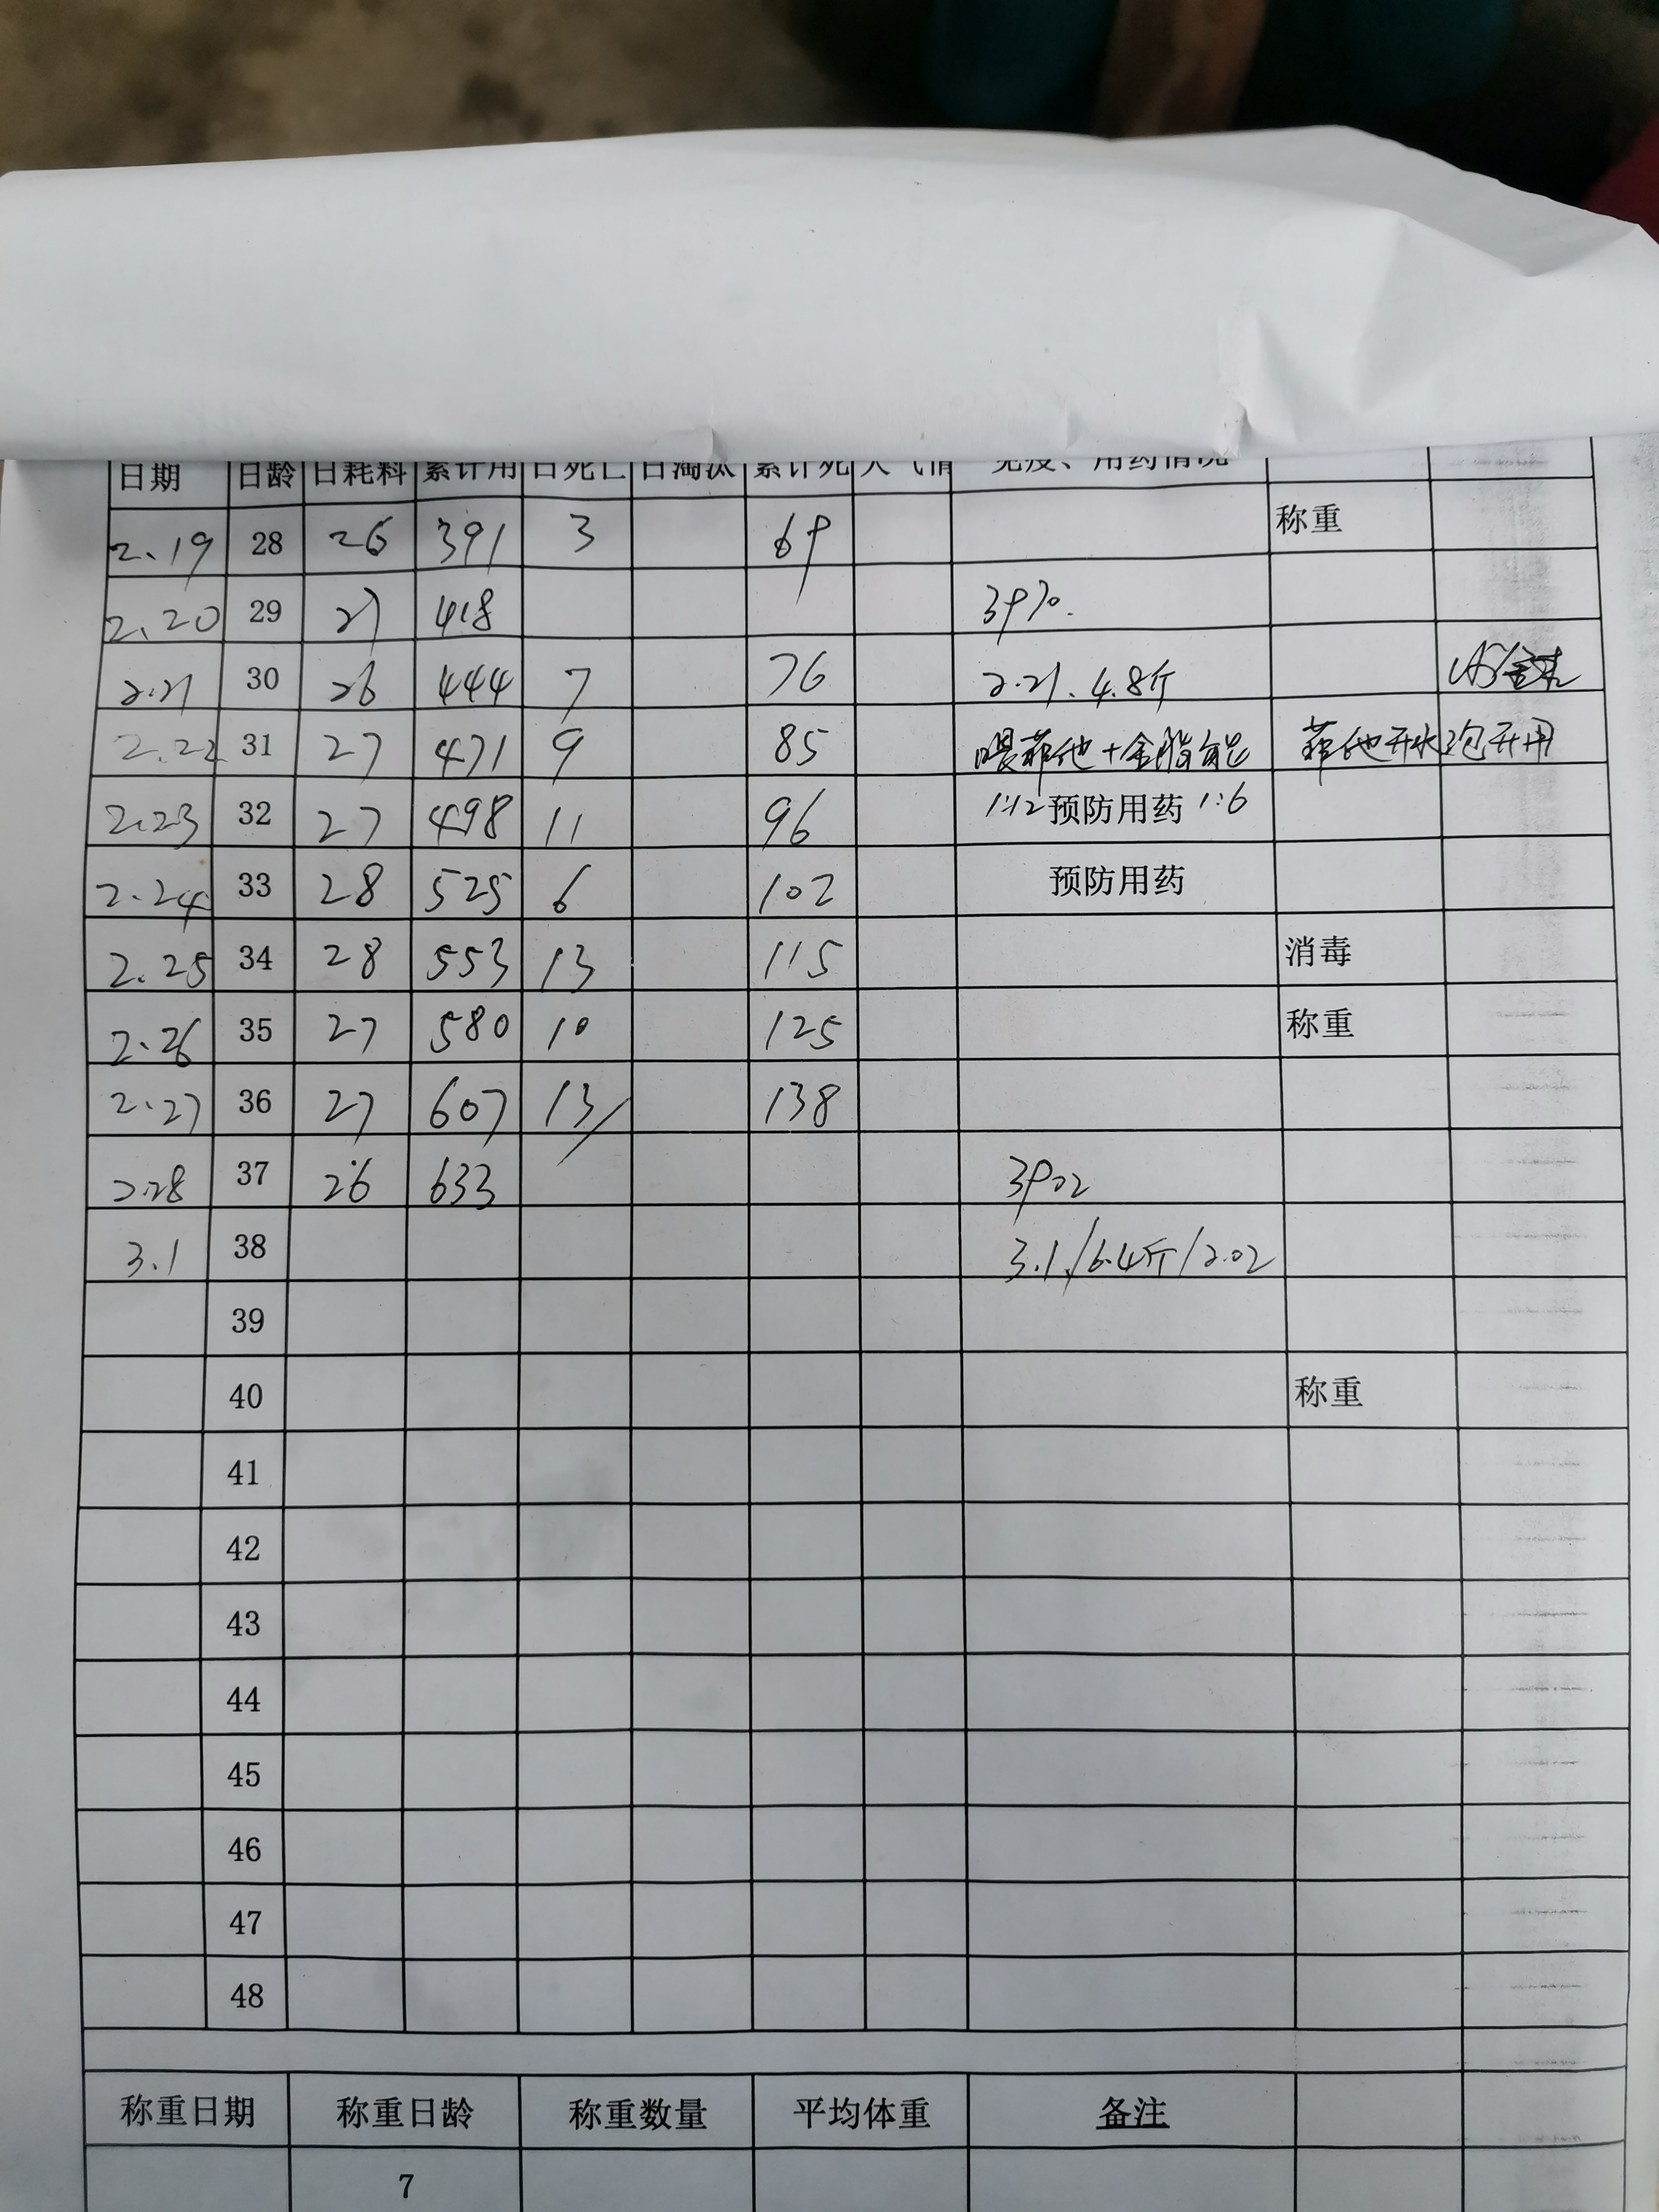 日期 日龄 日耗料 累计用 日死亡 日淘汰 累计死 天气情 免疫、用药情况
2.19 28 26 391 3 69 称重
2.20 29 27 418 3970.
2.21 30 26 444 7 76 2.21. 4.8斤
2.22 31 27 471 9 85 喂菲他+金脂能 菲他开水泡开用
2.23 32 27 498 11 96 1:12 预防用药 1:6
2.24 33 28 525 6 102 预防用药
2.25 34 28 553 13 115 消毒
2.26 35 27 580 10 125 称重
2.27 36 27 607 13 138
2.28 37 26 633 3902
3.1 38 3.1./6.4斤/2.02
39
40 称重
41
42
43
44
45
46
47
48
称重日期 称重日龄 称重数量 平均体重 备注
7